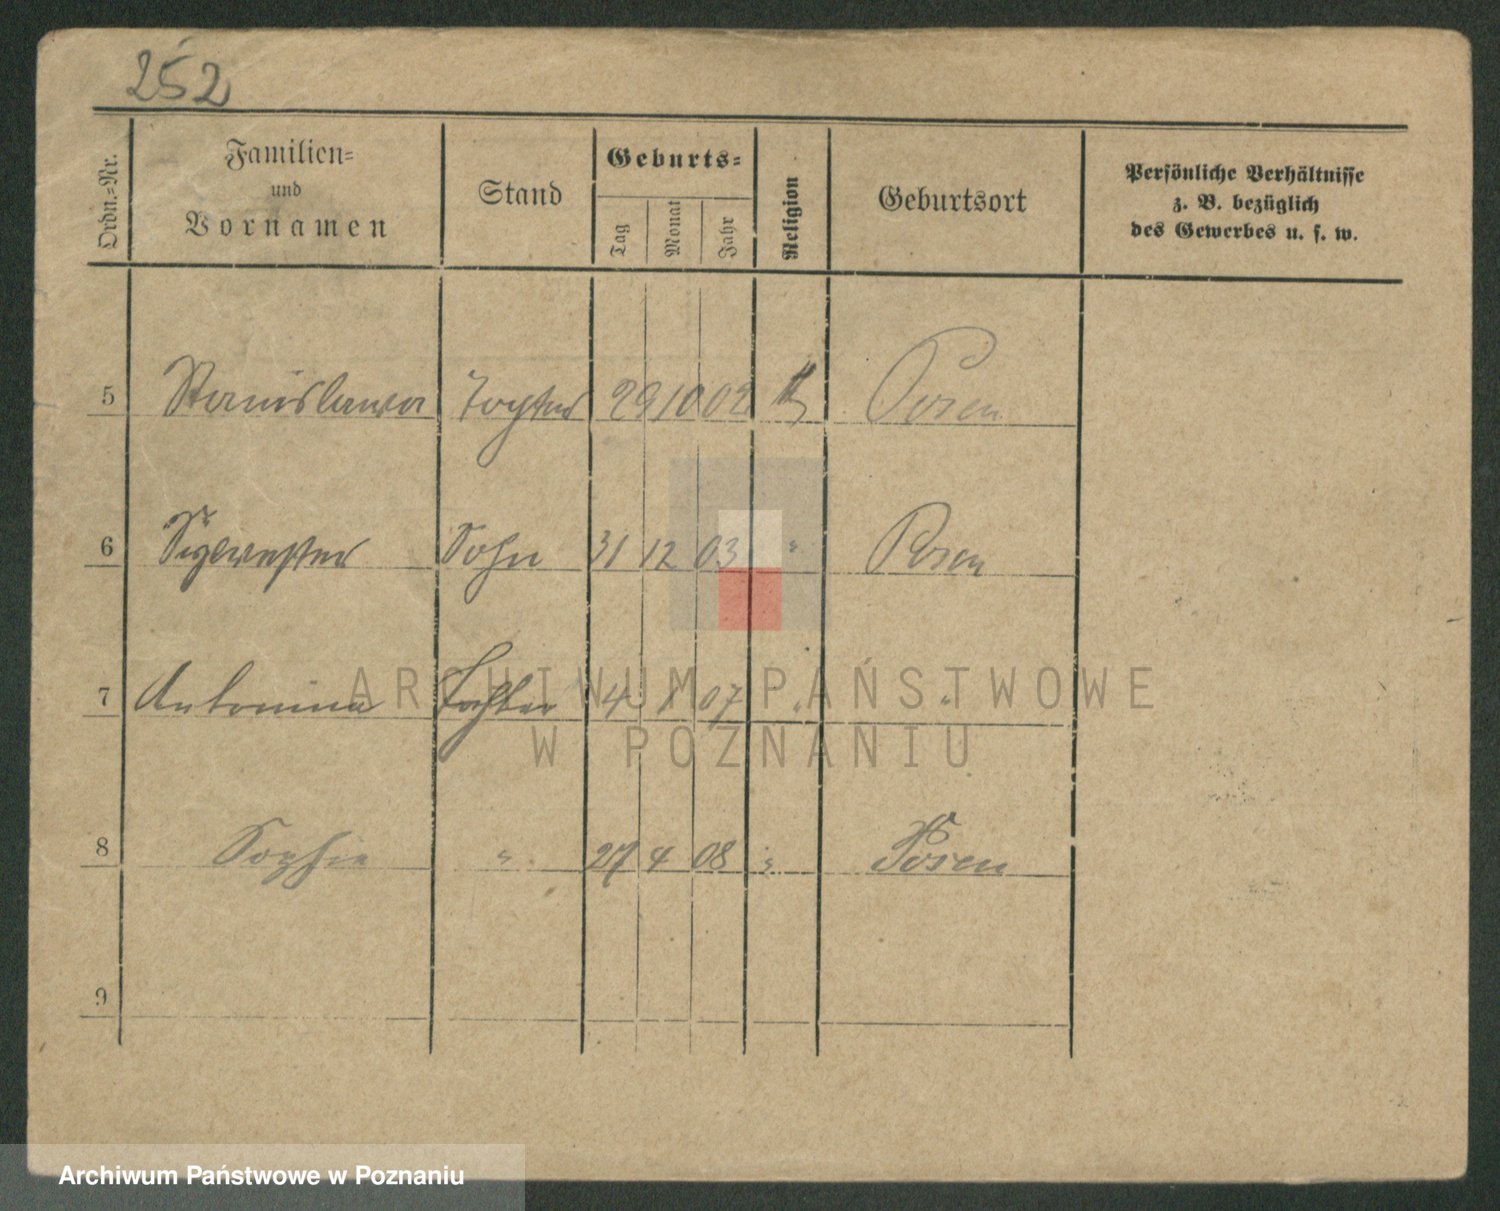 252
Ordn.-Nr.
Familien-
und
Vornamen
Stand
Geburts-
Tag
Monat
Jahr
Religion
Geburtsort
Persönliche Verhältnisse
z. B. bezüglich
des Gewerbes u. s. w.
5 Stanislawa Tochter 29 10 02 Posen
6 Sylwester Sohn 31 12 03 " Posen
7 Antonina Tochter 4 1 07 " "
8 Sophie " 27 4 08 " Posen
9
ARCHIWUM PAŃSTWOWE
W POZNANIU
Archiwum Państwowe w Poznaniu